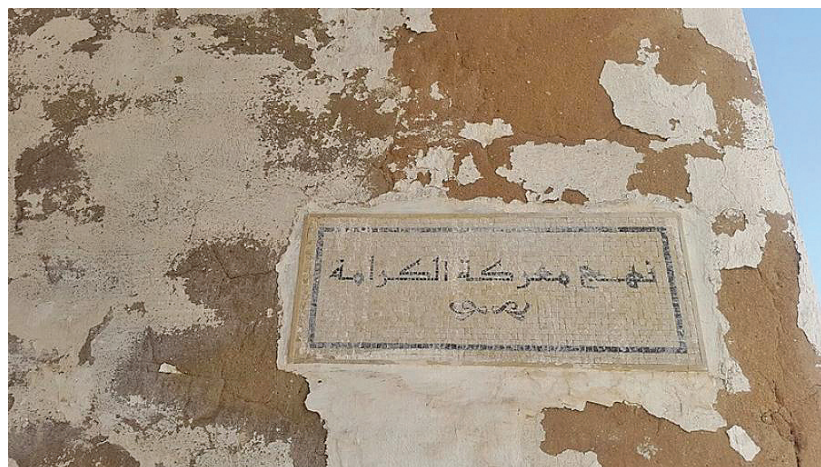 نهج معركة الكرامة